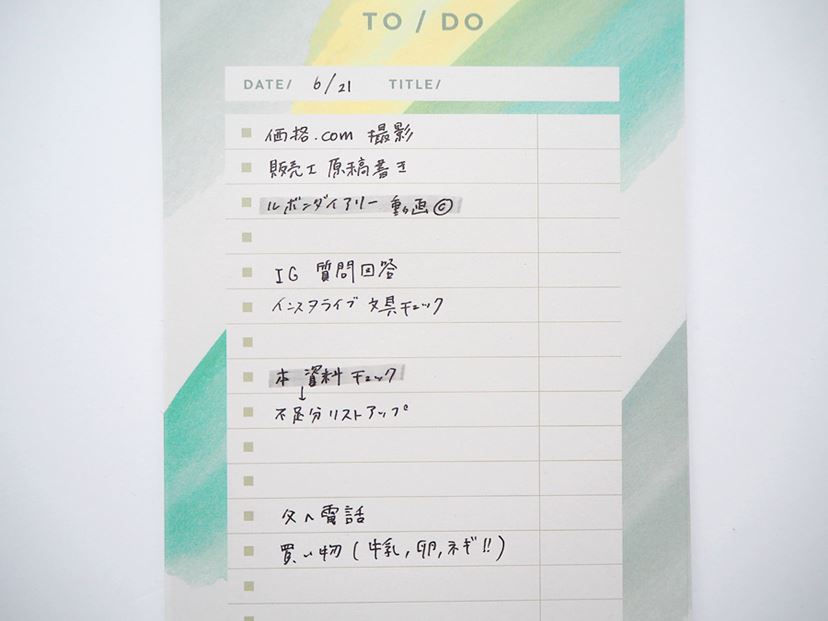 TO / DO
DATE/ 6/21 TITLE/
価格.com 撮影
販売士 原稿書き
ルボンダイアリー 動画©
IG 質問回答
インスタライブ 文具チェック
本 資料 チェック
↓
不足分リストアップ
父へ電話
買い物(牛乳,卵,ネギ!!)